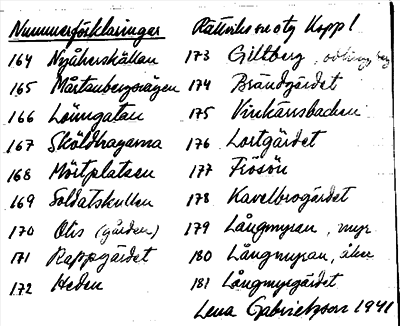 Nummerförklaringar
164 Nyåkerskällan
165 Mårtanbergsvägen
166 Lönngatan
167 Sköldhagarna
168 Mörtplatsen
169 Soldatskullen
170 Otis (gården)
171 Rappgärdet
172 Heden
Rättviks sn otg Kopp!
173 Giltberg, odling, berg
174 Brändgärdet
175 Vinkärnsbacken
176 Lortgärdet
177 Fiösön
178 Kavelbrogärdet
179 Långmyran, myr
180 Långmyran, åker
181 Långmyrgärdet
Lena Gabrielsson 1941